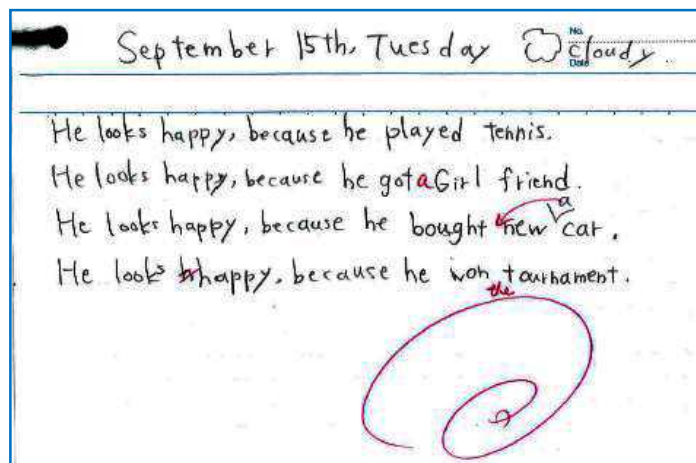 September 15th, Tuesday No. Date Cloudy.
He looks happy, because he played tennis.
He looks happy, because he got a Girl friend.
He looks happy, because he bought new a car.
He looks happy, because he won the tournament.